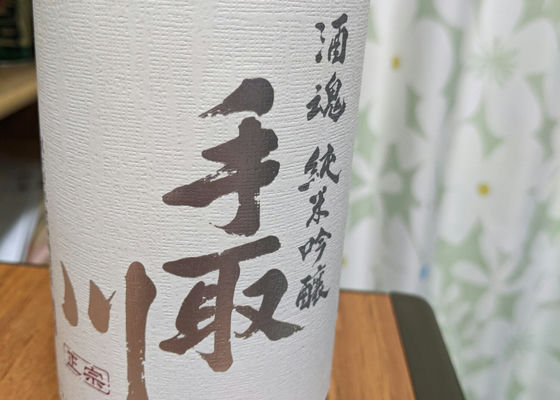 酒魂 純米吟醸
手取
川
正宗